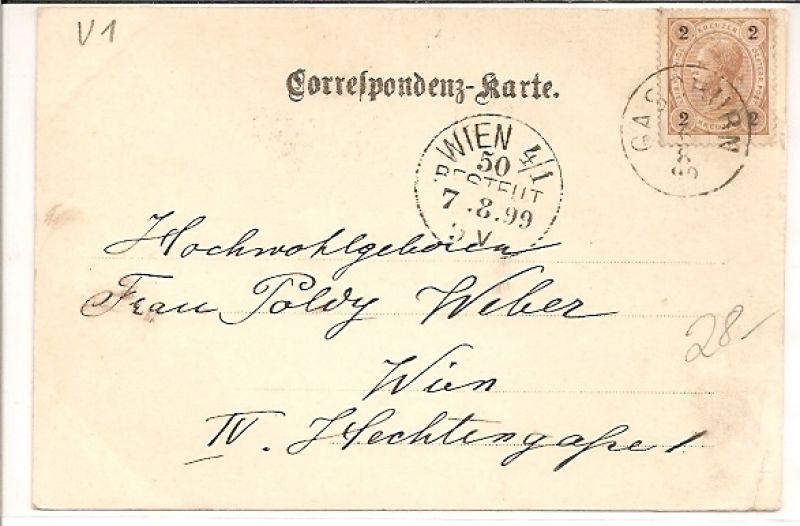 V1
2 KREUZER 2
2 2
Correspondenz-Karte.
GASCHURN
WIEN 4/1
50
BESTELLT
7.8.99
V
Hochwohlgeboren
Frau Poldy Weber
28-
Wien
IV. Hechtengaße 1